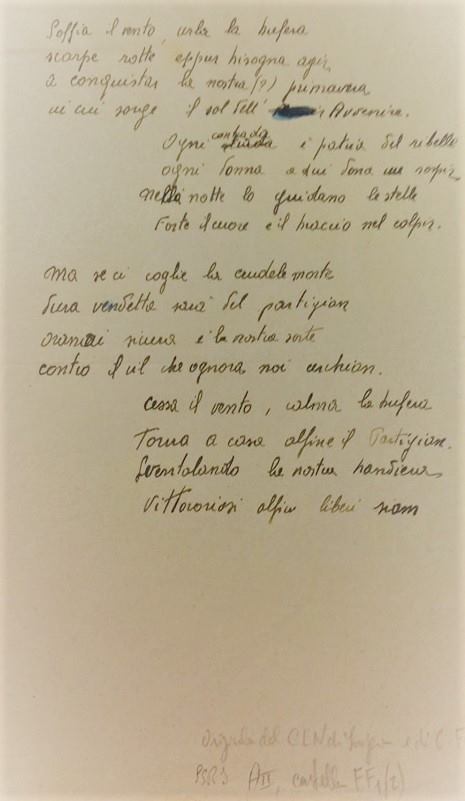 Soffia il vento, urla la bufera
scarpe rotte eppur bisogna agir
a conquistar la nostra (?) primavera
in cui sorge il sol dell' Avvenire.
Ogni contrada è patria del ribelle
ogni donna a lui dona un sospir
Nella notte lo guidano le stelle
Forte il cuore e il braccio nel colpir.
Ma se ci coglie la crudele morte
dura vendetta sarà del partigian
oramai sicura è la nostra sorte
contro il vil che ognora noi cerchiam.
Cessa il vento, calma la bufera
Torna a casa alfine il Partigian.
Sventolando la nostra bandiera
Vittoriosi alfin liberi siam
del CLN di
AII, cartella FF